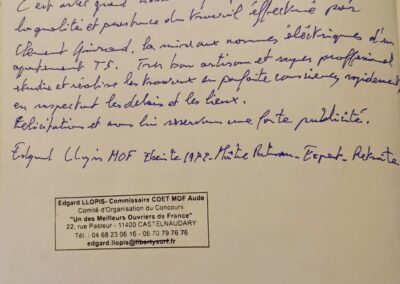 C'est avec grand
la qualité et du travail effectué par
Clément la mise aux normes électriques d'un
apartement T5. Tres bon artisan et super proffesionel
étudie et réalise les travaux en parfaite conscience, rapidement,
en respectant les delais et les lieux.
Félicitations et nous lui reservons une forte publicité.
Edgard Llopis MOF 1972 - Maitre Artisan - Expert - Retraite
Edgard LLOPIS- Commissaire COET MOF Aude
Comité d'Organisation du Concours
"Un des Meilleurs Ouvriers de France"
22, rue Pasteur - 11400 CASTELNAUDARY
Tél. : 04 68 23 06 16 - 06 70 79 76 76
edgard.llopis@libertysurf.fr